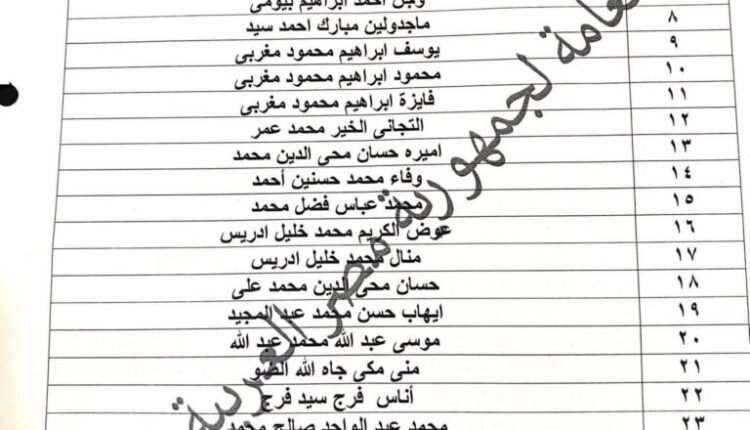 احمد ابراهيم بيومى
٨ ماجدولين مبارك احمد سيد
٩ يوسف ابراهيم محمود مغربى
١٠ محمود ابراهيم محمود مغربى
١١ فايزة ابراهيم محمود مغربى
١٢ التجانى الخير محمد عمر
١٣ اميره حسان محى الدين محمد
١٤ وفاء محمد حسنين أحمد
١٥ محمد عباس فضل محمد
١٦ عوض الكريم محمد خليل ادريس
١٧ منال محمد خليل ادريس
١٨ حسان محى الدين محمد على
١٩ ايهاب حسن محمد عبد المجيد
٢٠ موسى عبد الله محمد عبد الله
٢١ منى مكى جاه الله الضو
٢٢ أناس فرج سيد فرج
٢٣ محمد عبد الواحد صالح محمد
لجمهورية مصر العربية